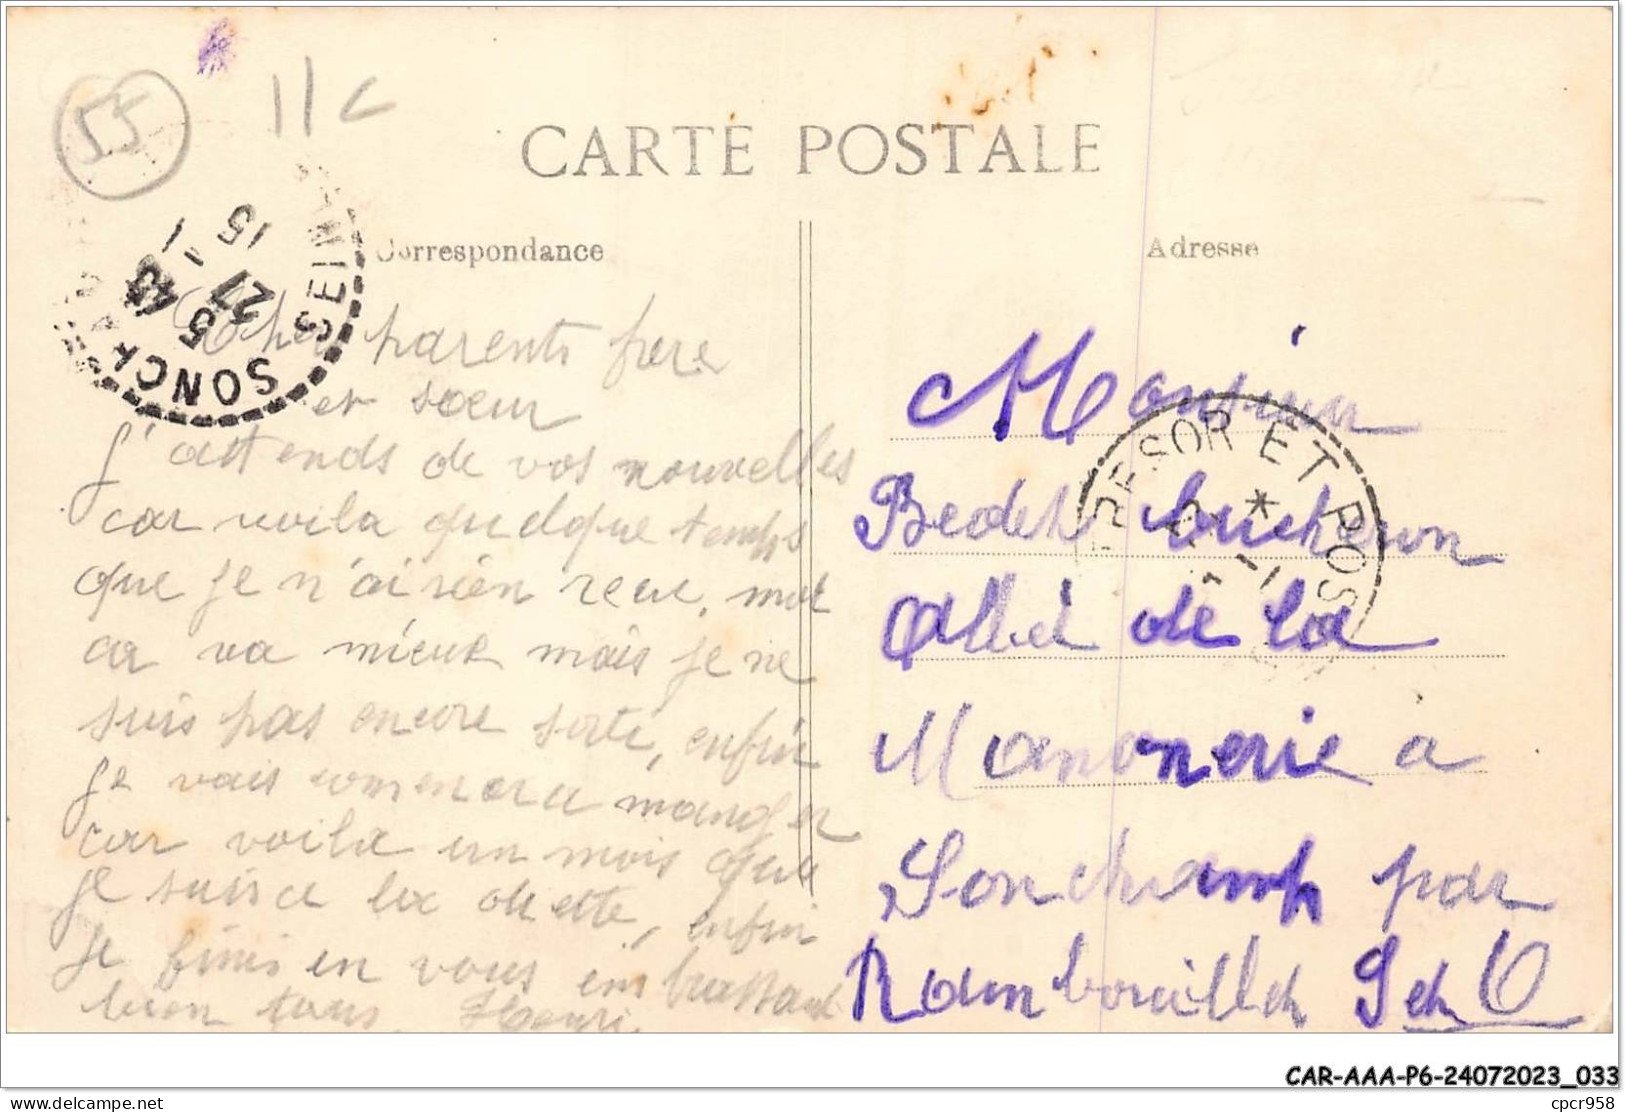 55
11c
CARTE POSTALE
Correspondance
Adresse
SONCH SEINE
15 - 1
27 5
Cher parents frere
et sœur
J'attends de vos nouvelles
car voila quelque temps
que je n'ai rien recue, moi
ca va mieux mais je ne
suis pas encore sorti, enfin
je vais commenca a manger
car voila un mois que
je suis a la diette, enfin
je finis en vous embrassant
bien tous. Henri.
TRESOR ET POSTES
Monsieur
Bedet bucheron
Allée de la
Manonerie a
Sonchamp par
Rambouillet S et O
CAR-AAA-P6-24072023_033
delcampe.net
cpcr958